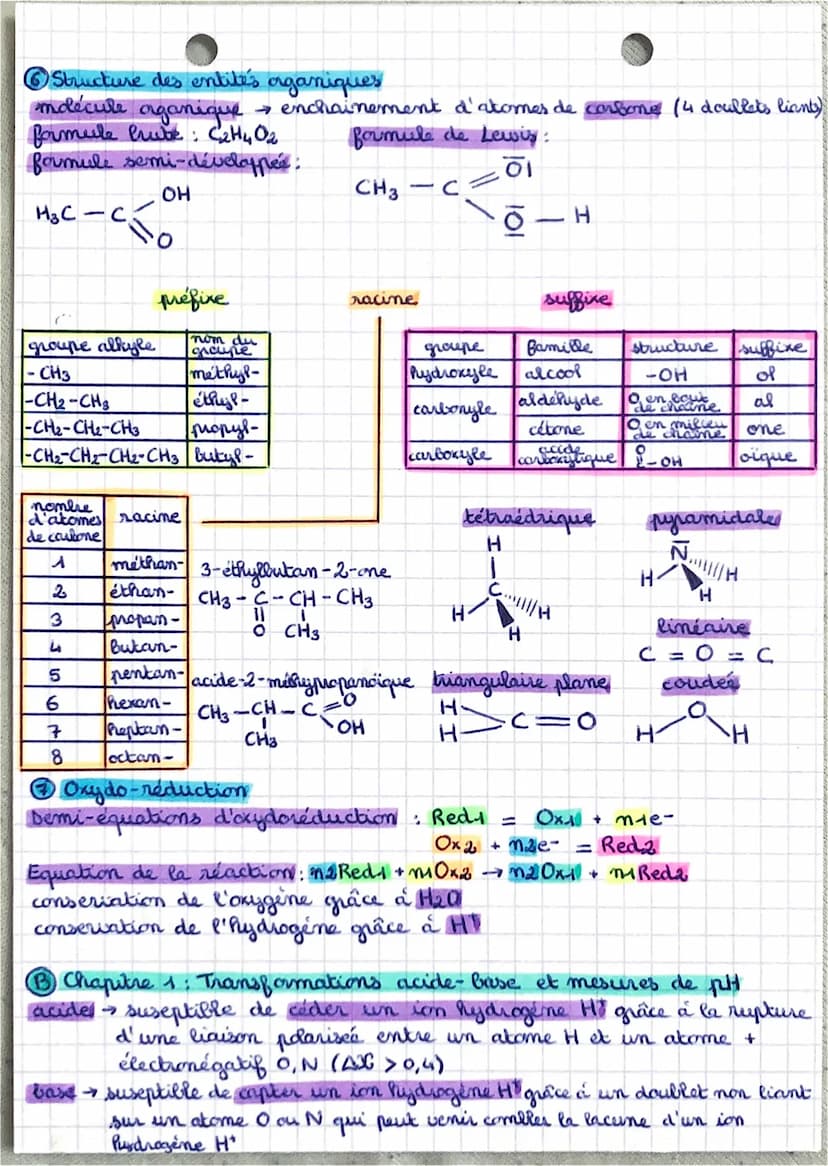 ⑥ Structure des entités organiques
molécule organique → enchainement d'atomes de carbone (4 doublets liants)
formule brute : C2H4O2 formule de Lewis :
formule semi-développée :
H3C — C OH O
CH3 — C O O — H
préfixe racine suffixe
groupe alkyle nom du groupe
- CH3 méthyl-
-CH2-CH3 éthyl-
-CH2-CH2-CH3 propyl-
-CH2-CH2-CH2-CH3 butyl-
groupe famille structure suffixe
hydroxyle alcool -OH ol
carbonyle aldéhyde O en bout de chaîne al
cétone O en milieu de chaîne one
carboxyle acide carboxylique O C-OH oïque
nombre d'atomes de carbone racine
1 méthan-
2 éthan-
3 propan-
4 butan-
5 pentan-
6 hexan-
7 heptan-
8 octan-
3-éthylbutan-2-one
CH3 - C - CH - CH3
O CH3
acide-2-méthypropanoïque
CH3 - CH - C = O
OH
CH3
tétraédrique
H
C
H H
H
pyramidale
N
H H
H
linéaire
C = O = C
triangulaire plane
H
H C = O
coudée
O
H H
⑦ Oxydo-réduction
Demi-équations d'oxydoréduction : Red1 = Ox1 + n1e-
Ox2 + n2e- = Red2
Equation de la réaction : n2Red1 + n1Ox2 → n2Ox1 + n1Red2
conservation de l'oxygène grâce à H2O
conservation de l'hydrogène grâce à H+
B Chapitre 1 : Transformations acide-base et mesures de pH
acides → suseptible de céder un ion hydrogène H+ grâce à la rupture
d'une liaison polarisée entre un atome H et un atome +
électronégatif O, N (ΔX > 0,4)
base → suseptible de capter un ion hydrogène H+ grâce à un doublet non liant
sur un atome O ou N qui peut venir combler la lacune d'un ion
hydrogène H+